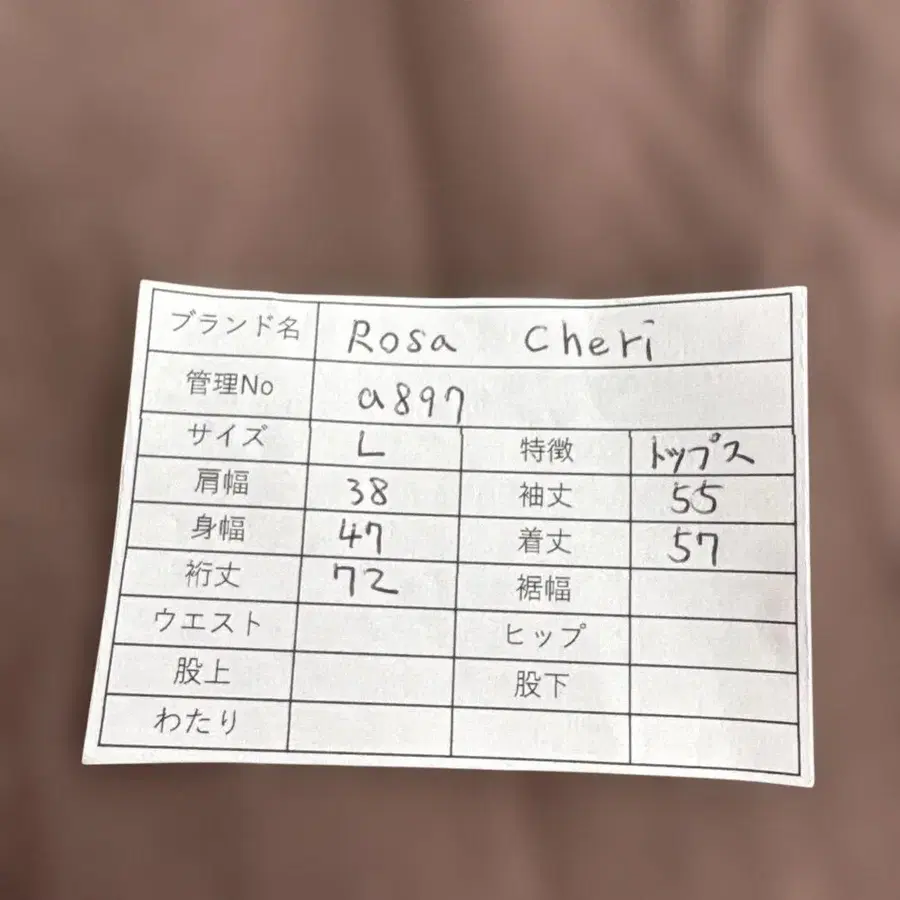 ブランド名 Rosa Cheri
管理No a897
サイズ L 特徴 トップス
肩幅 38 袖丈 55
身幅 47 着丈 57
裄丈 72 裾幅
ウエスト ヒップ
股上 股下
わたり